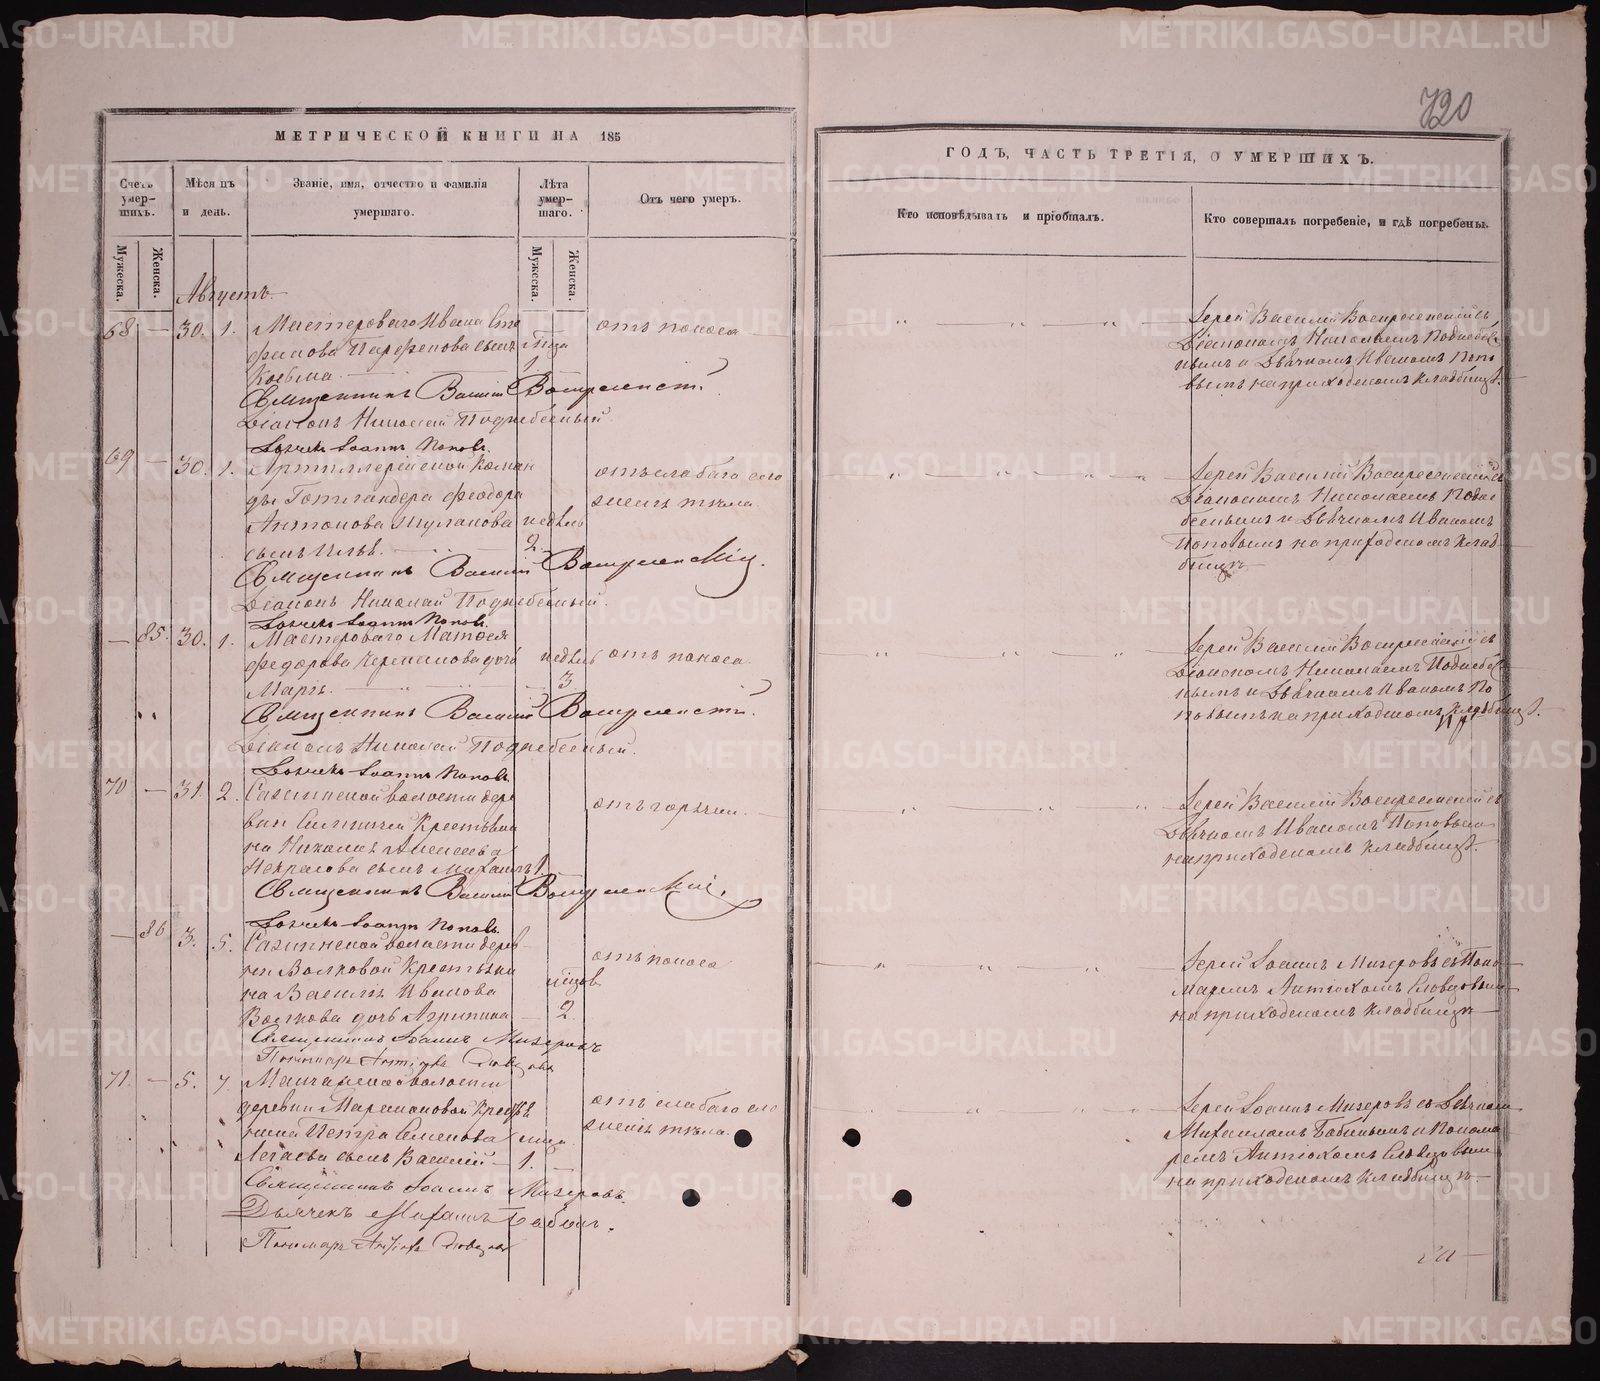 720
МЕТРИЧЕСКОЙ КНИГИ НА 185
ГОДЪ, ЧАСТЬ ТРЕТІЯ, О УМЕРШИХЪ.
Счетъ умер-шихъ.
Мѣсяцъ и день.
Званіе, имя, отчество и фамилія умершаго.
Лѣта умер-шаго.
Отъ чего умеръ.
Кто исповѣдывалъ и пріобщалъ.
Кто совершалъ погребеніе, и гдѣ погребены.
Мужеска.
Женска.
Мужеска.
Женска.
Августъ.
68 — 30. 1. Мастероваго Ивана Сте
фанова Парфенова сынъ
Косьма 1
отъ поноса
Іерей Василій Воскресенскій съ
Діакономъ Николаемъ Поднебес
нымъ и Дьячкомъ Иваномъ Попо
вымъ на приходскомъ кладбищѣ.
Священникъ Василій Воскресенскій.
Діаконъ Николай Поднебесный.
Дьячекъ Іоаннъ Поповъ.
69 — 30. 1. Артиллерійской коман
ды Феодора
Антонова сынъ недѣль
2
отъ слабаго сло
женія тѣла
Іерей Василій Воскресенскій съ
Діакономъ Николаемъ Подне
беснымъ и Дьячкомъ Иваномъ
Поповымъ на приходскомъ клад
бищѣ
Священникъ Василій Воскресенскій.
Діаконъ Николай Поднебесный.
Дьячекъ Іоаннъ Поповъ.
— 85. 30. 1. Мастероваго Матвея
Федорова дочь недѣль
Марія. 3
отъ поноса
Іерей Василій Воскресенскій съ
Діакономъ Николаемъ Поднебес
нымъ и Дьячкомъ Иваномъ По
повымъ на приходскомъ кладбищѣ.
Священникъ Василій Воскресенскій.
Діаконъ Николай Поднебесный.
Дьячекъ Іоаннъ Поповъ.
70 — 31. 2. Сажинской волости дере
вни Крестьяни
на Алексеева
Некрасова сынъ Михаилъ 1.
отъ горячки.
Іерей Василій Воскресенскій съ
Дьячкомъ Иваномъ Поповымъ
на приходскомъ кладбищѣ.
Священникъ Василій Воскресенскій.
Дьячекъ Іоаннъ Поповъ.
— 86 3. 5. Сажинской волости дерев
ни Волковой Крестьяни
на Василья Иванова
Волкова дочь Агрипина 2.
отъ поноса
Іерей Іоаннъ Мизеровъ съ Поно
маремъ Антіохомъ Словцовымъ
на приходскомъ кладбищѣ
Священникъ Іоаннъ Мизеровъ
Пономарь Антіохъ Словцовъ
71. — 5. 7. волости
деревни Крестья
нина Петра Семенова
сынъ Василій 1.
отъ слабаго сло
женія тѣла.
Іерей Іоаннъ Мизеровъ съ Дьячком
Михаиломъ Бабинымъ и Понома
ремъ Антіохомъ Словцовымъ
на приходскомъ кладбищѣ.
Священникъ Іоаннъ Мизеровъ.
Дьячекъ Михаилъ Бабинъ.
Пономарь Антіохъ Словцовъ
METRIKI.GASO-URAL.RU